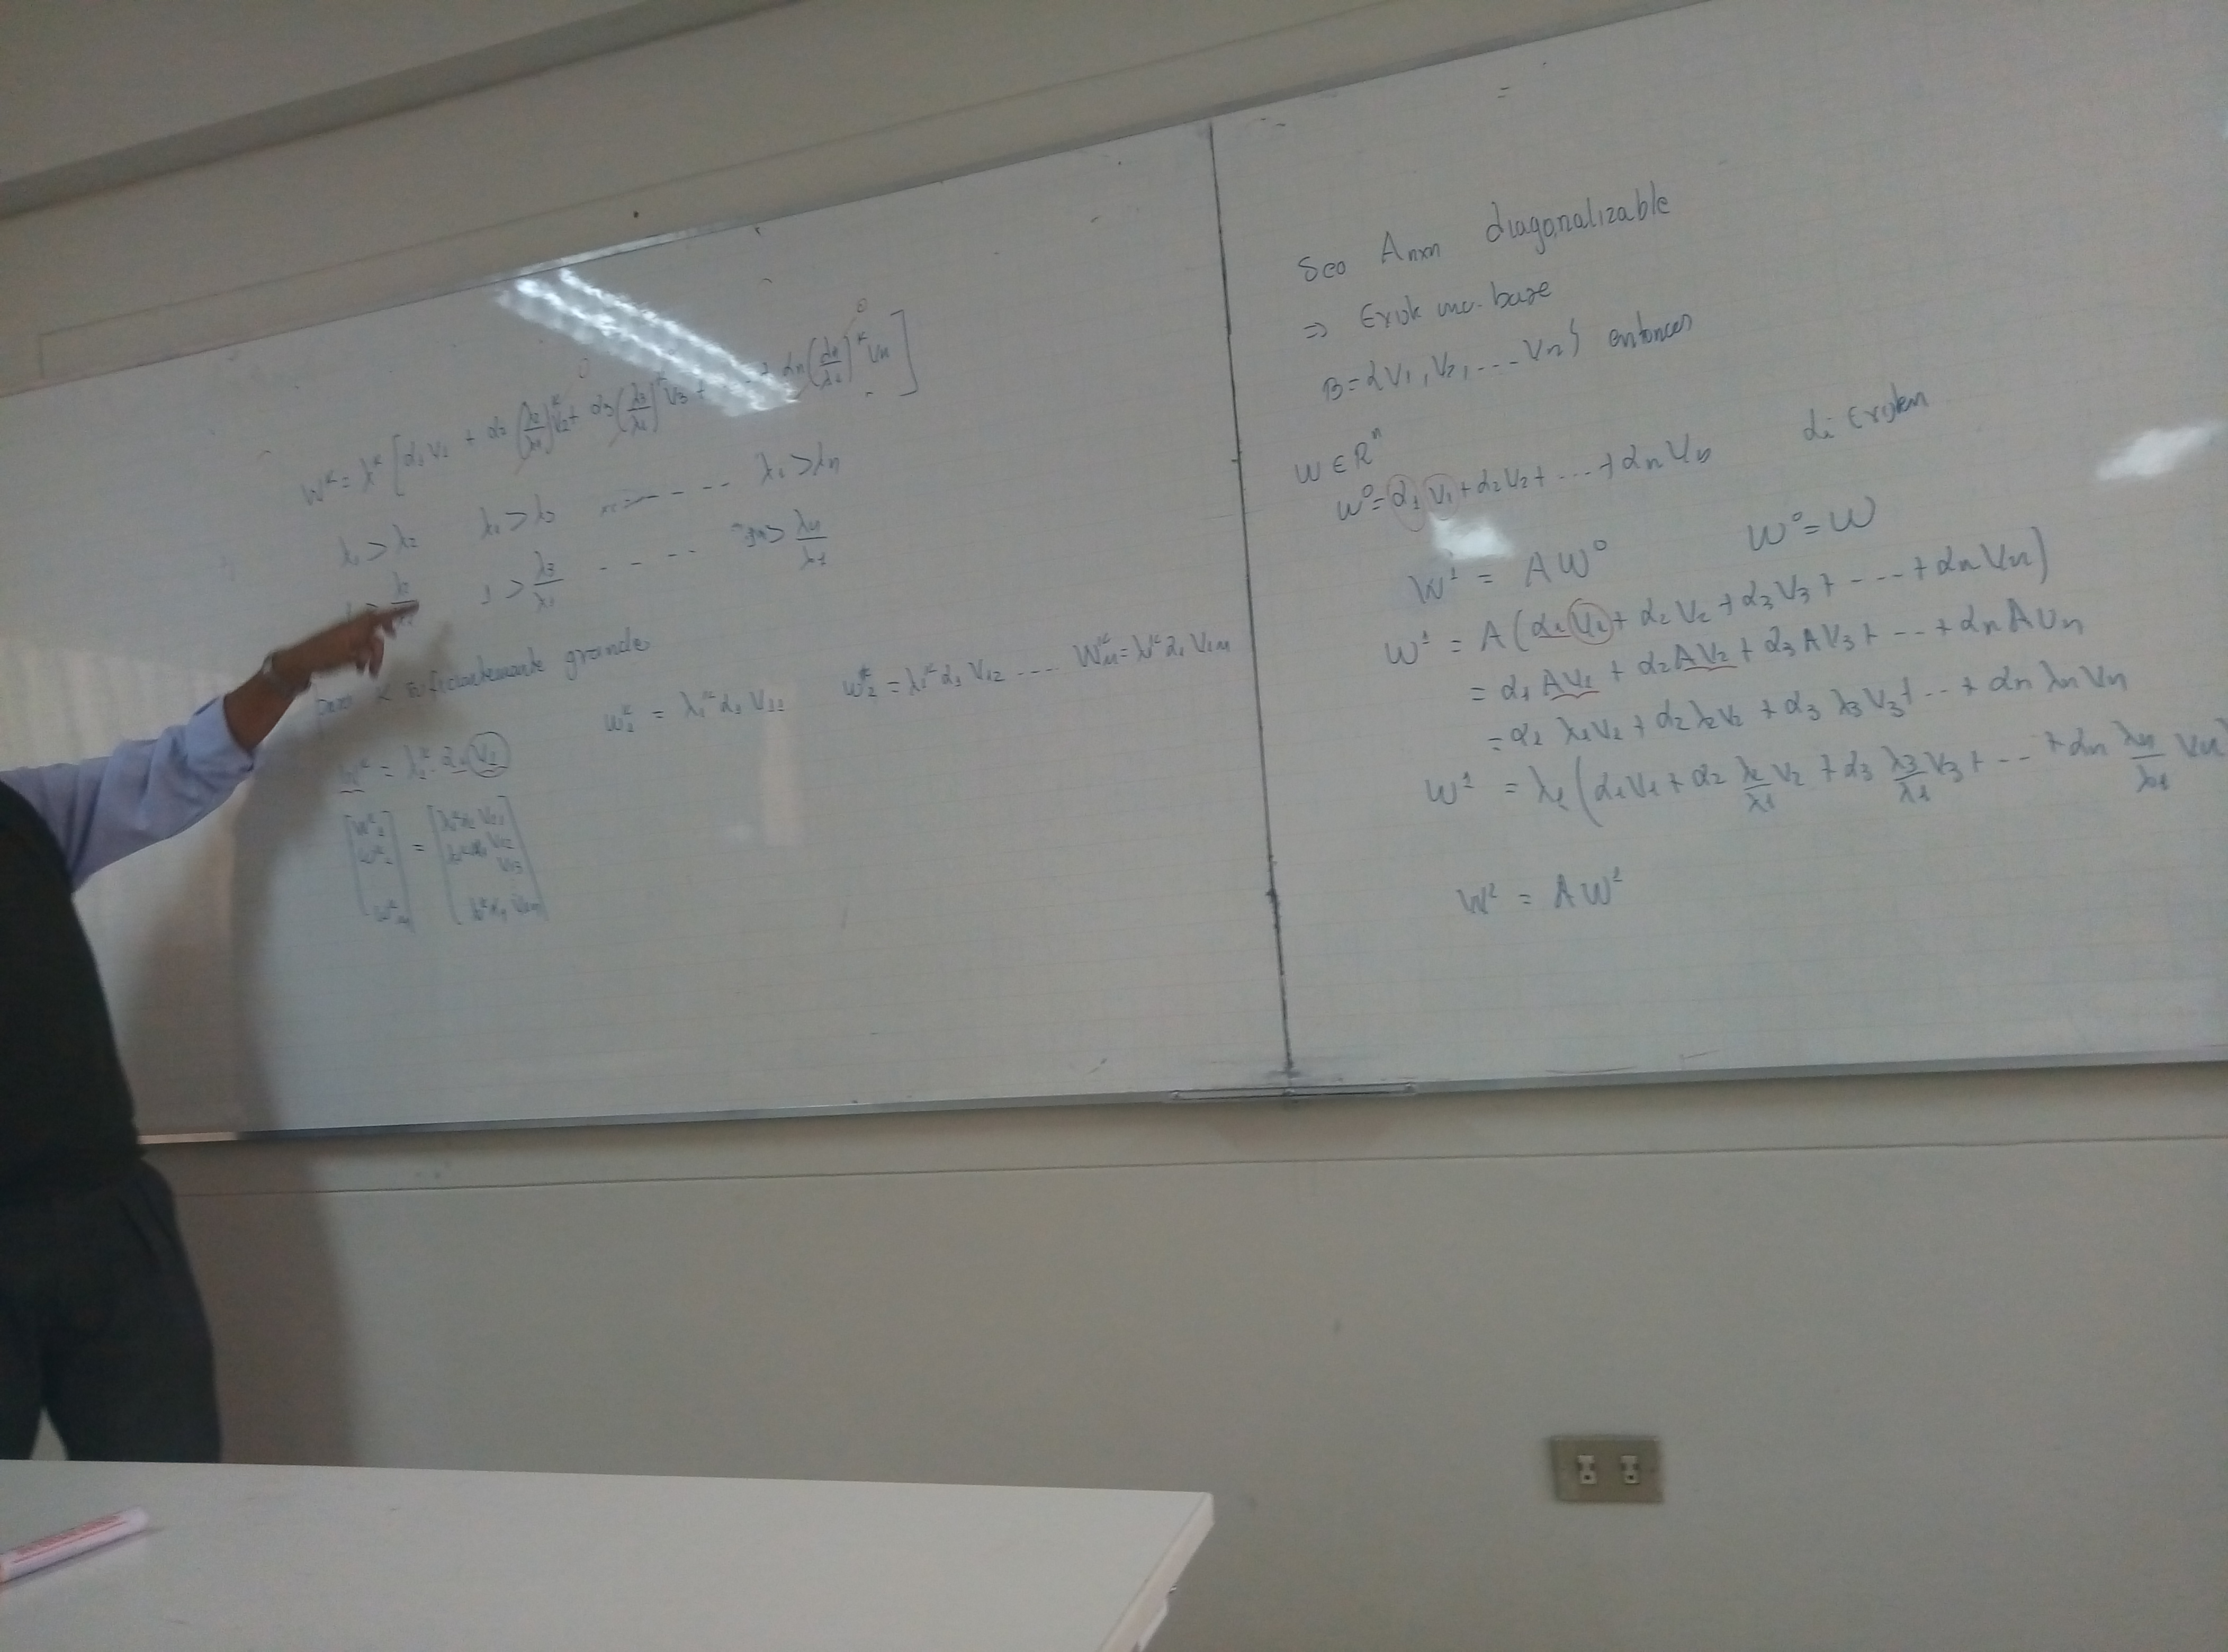 W^k = λ^k [α₁V₁ + α₂(λ₂/λ₁)^k V₂ + α₃(λ₃/λ₁)^k V₃ + + αn(λn/λ₁)^k Vn]
0 0
λ₁ > λ₂ λ₁ > λ₃ ---- λ₁ > λn
1 > λ₃/λ₁ ---- > λn/λ₁
K suficientemente grande
W^k = λ₁^k α₁ V₁ W₁^k = λ₁^k α₁ V₁₁ W₂^k = λ₁^k α₁ V₁₂ .... Wn^k = λ^k α₁ V₁n
[W₁^k W₂^k Wn^k] = [λ₁^k α₁ V₁₁ λ₁^k α₁ V₁₂ V₁₃ λ₁^k α₁ V₁n]
Sea Anxn diagonalizable
⇒ Existe una base
B = {V₁, V₂, ... Vn} entonces
W ∈ R^n
W⁰ = α₁V₁ + α₂V₂ + ... + αnVn αi
W¹ = AW⁰ W⁰ = W
W¹ = A(α₁V₁ + α₂V₂ + α₃V₃ + ---- + αnVn)
= α₁AV₁ + α₂AV₂ + α₃AV₃ + --- + αnAVn
= α₁λ₁V₁ + α₂λ₂V₂ + α₃λ₃V₃ + --- + αnλnVn
W¹ = λ₁(α₁V₁ + α₂ λ₂/λ₁ V₂ + α₃ λ₃/λ₁ V₃ + --- + αn λn/λ₁ Vn)
W² = AW¹